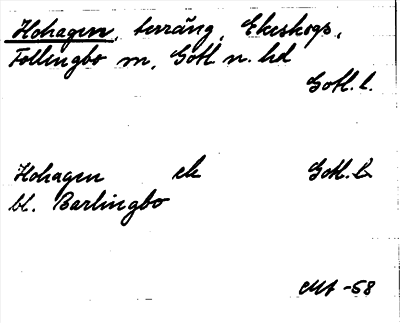 Hohagen, terräng, Ekeskogs,
Follingbo m, Gotl. n. hd
Gotl. l.
Hohagen ek Gotl. l.
bl. Barlingbo
-58